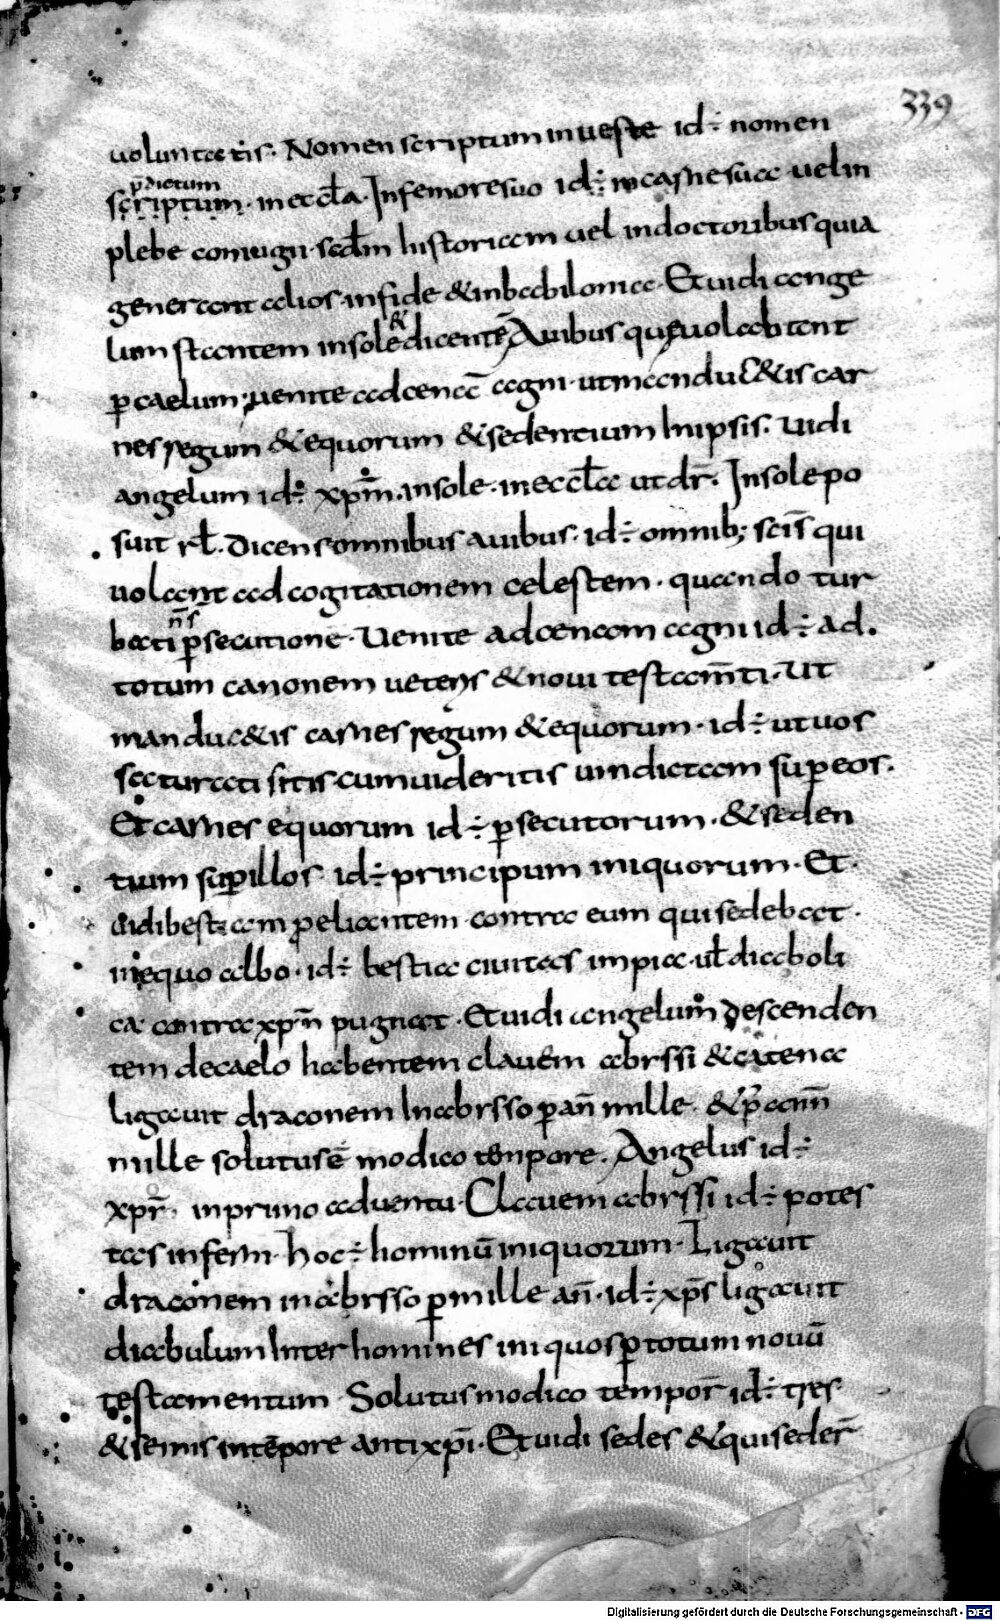 339
uoluntatis. Nomen scriptum in ueste id÷ nomen
p̄dictum
scriptum. in eccl̄a. In femore suo id÷ in carne sua uel in
plebe coniugii scd̄m historiam uel in doctoribus quia
generant alios in fide & in babilonia. Et uidi ange
lum stantem in sole & dicentē Auibus quę uolabant
p caelum; uenite ad cenā agni ut manduc&is car
nes regum & equorum & sedentium In ipsis. Uidi
angelum id÷ xp̄m. in sole. in eccl̄a ut dr̄. In sole po
suit rl̄. Dicens omnibus auibus. id÷ omnib; sc̄is qui
uolant ad cogitationem celestem. quando tur
n̄s
bati psecutione. Uenite ad cenam agni id÷ ad.
totum canonem ueteris & noui testam̄ti. Ut
manduc&is carnes regum & equorum. id÷ ut uos
saturati sitis cum uideritis uindictam sup eos.
Et carnes equorum id÷ psecutorum. & seden
tium sup illos id÷ principum iniquorum. Et
uidi bestiam peliantem contra eum qui sedebat.
in equo albo. id÷ bestia ciuitas impia. ul̄ diaboli
ca contra xp̄m pugnat. Et uidi angelum descenden
tem de caelo habentem clauem abrssi & catena
ligauit draconem In abrsso p an̄ mille. & p̄ ann̄
mille solutus ē modico tempore. Angelus id÷
xpr̄. in primo aduentu. Clauem abrssi id÷ potes
tas inferni. hoc ÷ hominū iniquorum. Ligauit
draconem in abrsso p mille an̄. id÷ xp̄s ligauit
diabulum Inter homines iniquos p totum nouū
testamentum. Solutus modico tempor̄ id÷ tres
& semis in tēpore antixp̄i. Et uidi sedes & qui seder̄
Digitalisierung gefördert durch die Deutsche Forschungsgemeinschaft - DFG